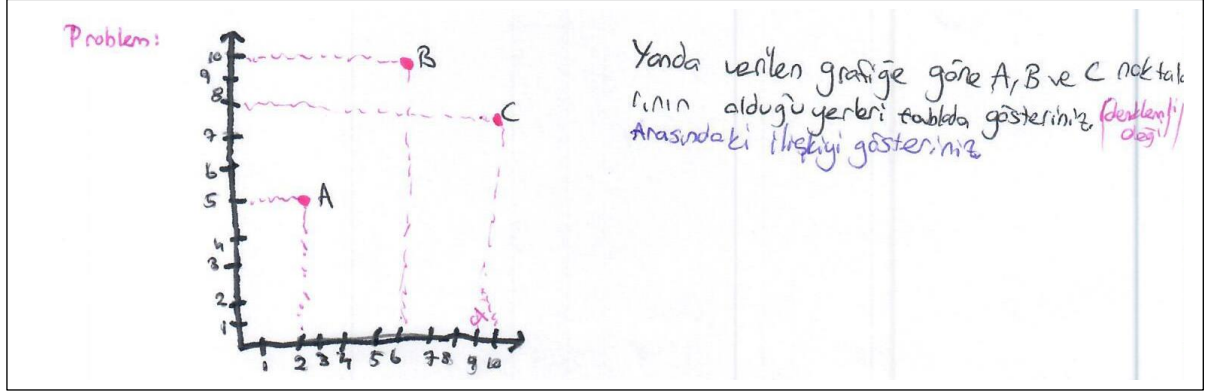 Problem:
10
9
8
7
6
5
4
3
2
1
B
C
A
1 2 3 4 5 6 7 8 9 10
Yanda verilen grafiğe göre A, B ve C noktala
rının olduğu yerleri tabloda gösteriniz.
Arasındaki ilişkiyi gösteriniz